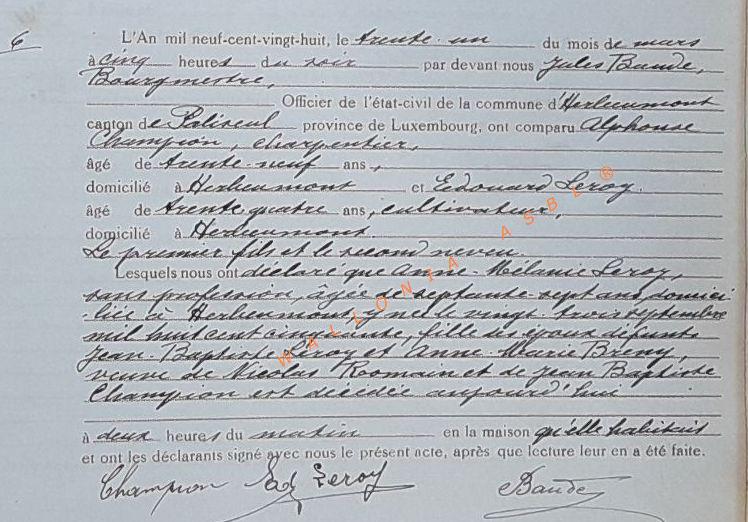 6
L'An mil neuf-cent-vingt-huit, le trente-un du mois de mars
à cinq heures du soir par devant nous Jules Baude,
Bourgmestre,
Officier de l'état-civil de la commune d'Herbeumont
canton de Paliseul province de Luxembourg, ont comparu Alphonse
Champion, charpentier,
âgé de trente-neuf ans,
domicilié à Herbeumont et Edouard Leroy.
âgé de trente-quatre ans, cultivateur,
domicilié à Herbeumont
Le premier fils et le second neveu.
Lesquels nous ont déclaré que Anne-Mélanie Leroy,
sans profession, âgée de septante-sept ans, domici
liée à Herbeumont, y née le vingt-trois septembre
mil huit cent cinquante, fille des époux défunts
Jean-Baptiste Leroy et Anne-Marie Breny,
veuve de Nicolas Roomain et de Jean Baptiste
Champion est décédée aujourd'hui
à deux heures du matin en la maison qu'elle habitait
et ont les déclarants signé avec nous le présent acte, après que lecture leur en a été faite.
Champion Ed Leroy Baude
WALLONIA ASBL ®